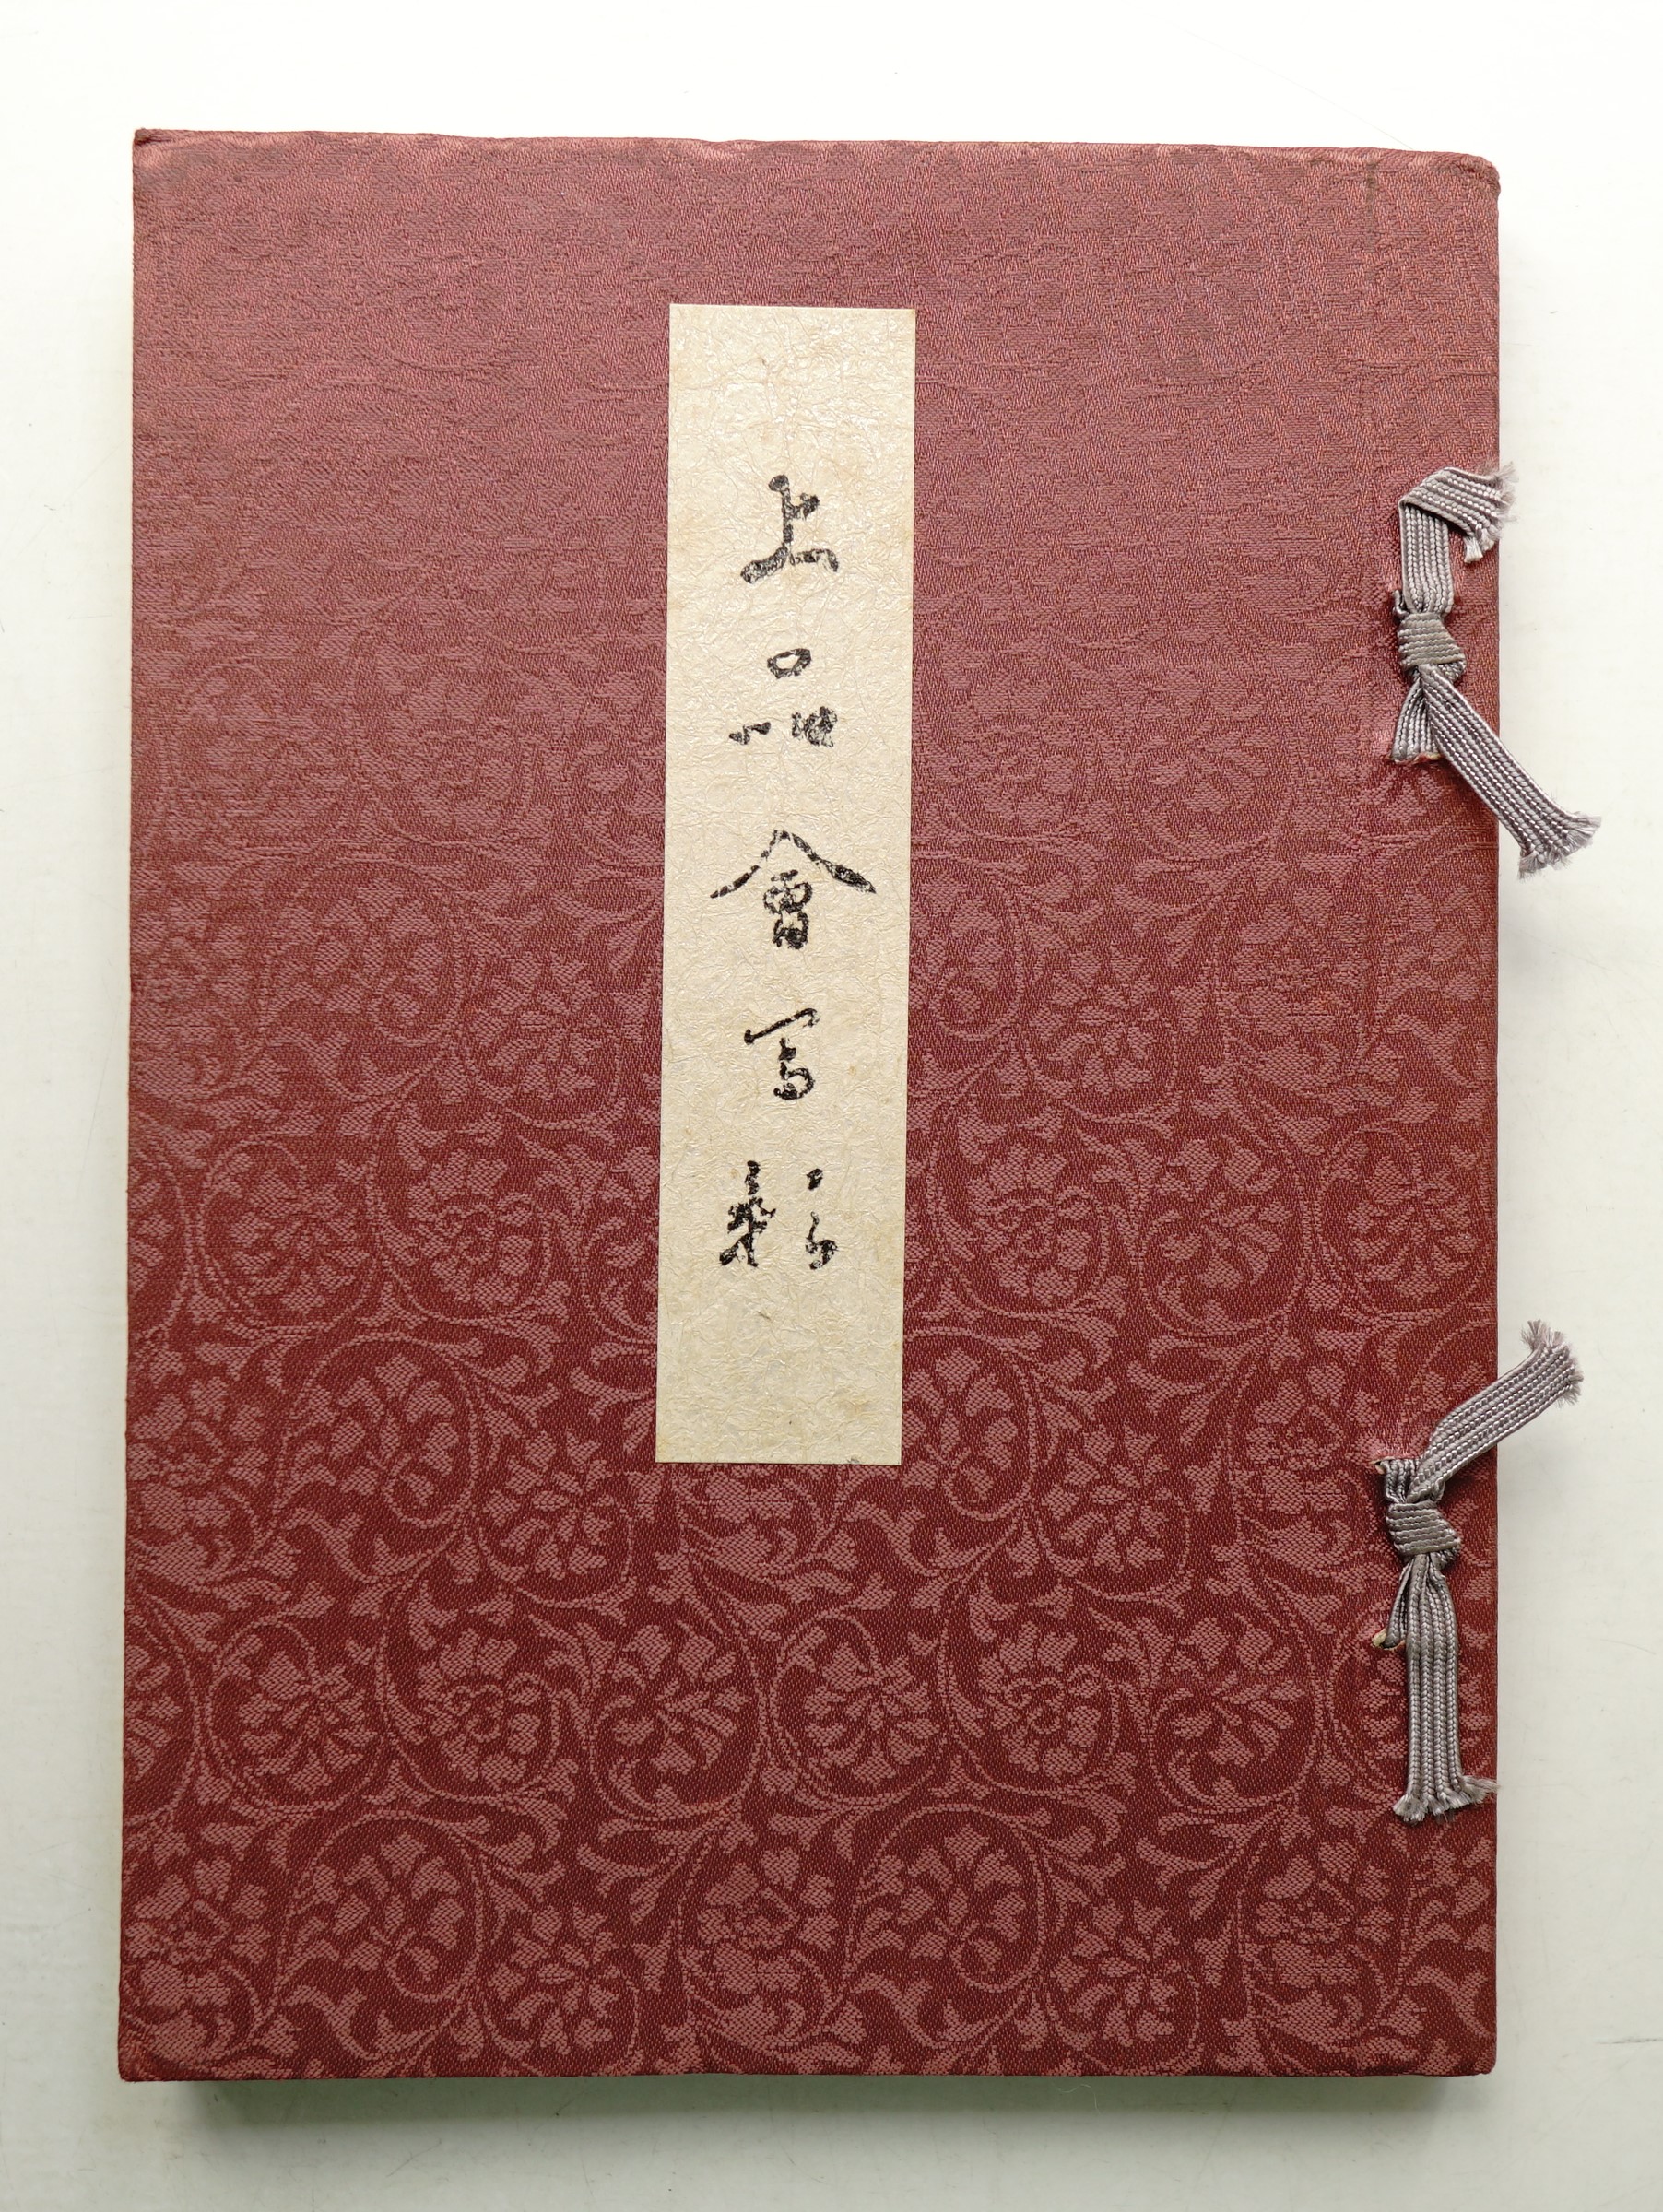 上品會写影